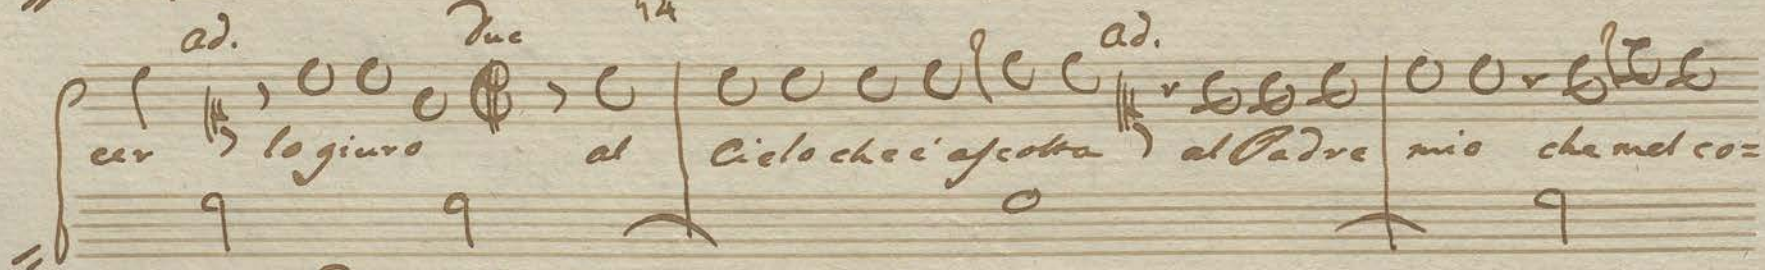 ad. Due 14 ad.
cer lo giuro al Cielo che c'ascolta al Padre mio che mel co=